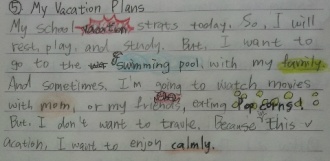 ⑤ My Vacation Plans
My school vacation strats today. So, I will
rest, play, and study. But, I want to
go to the swimming pool, with my family.
And sometimes, I'm going to watch movies
with mom, or my friends, eating popcorns!
But, I don't want to travle, Because this v
acation, I want to enjoy calmly.